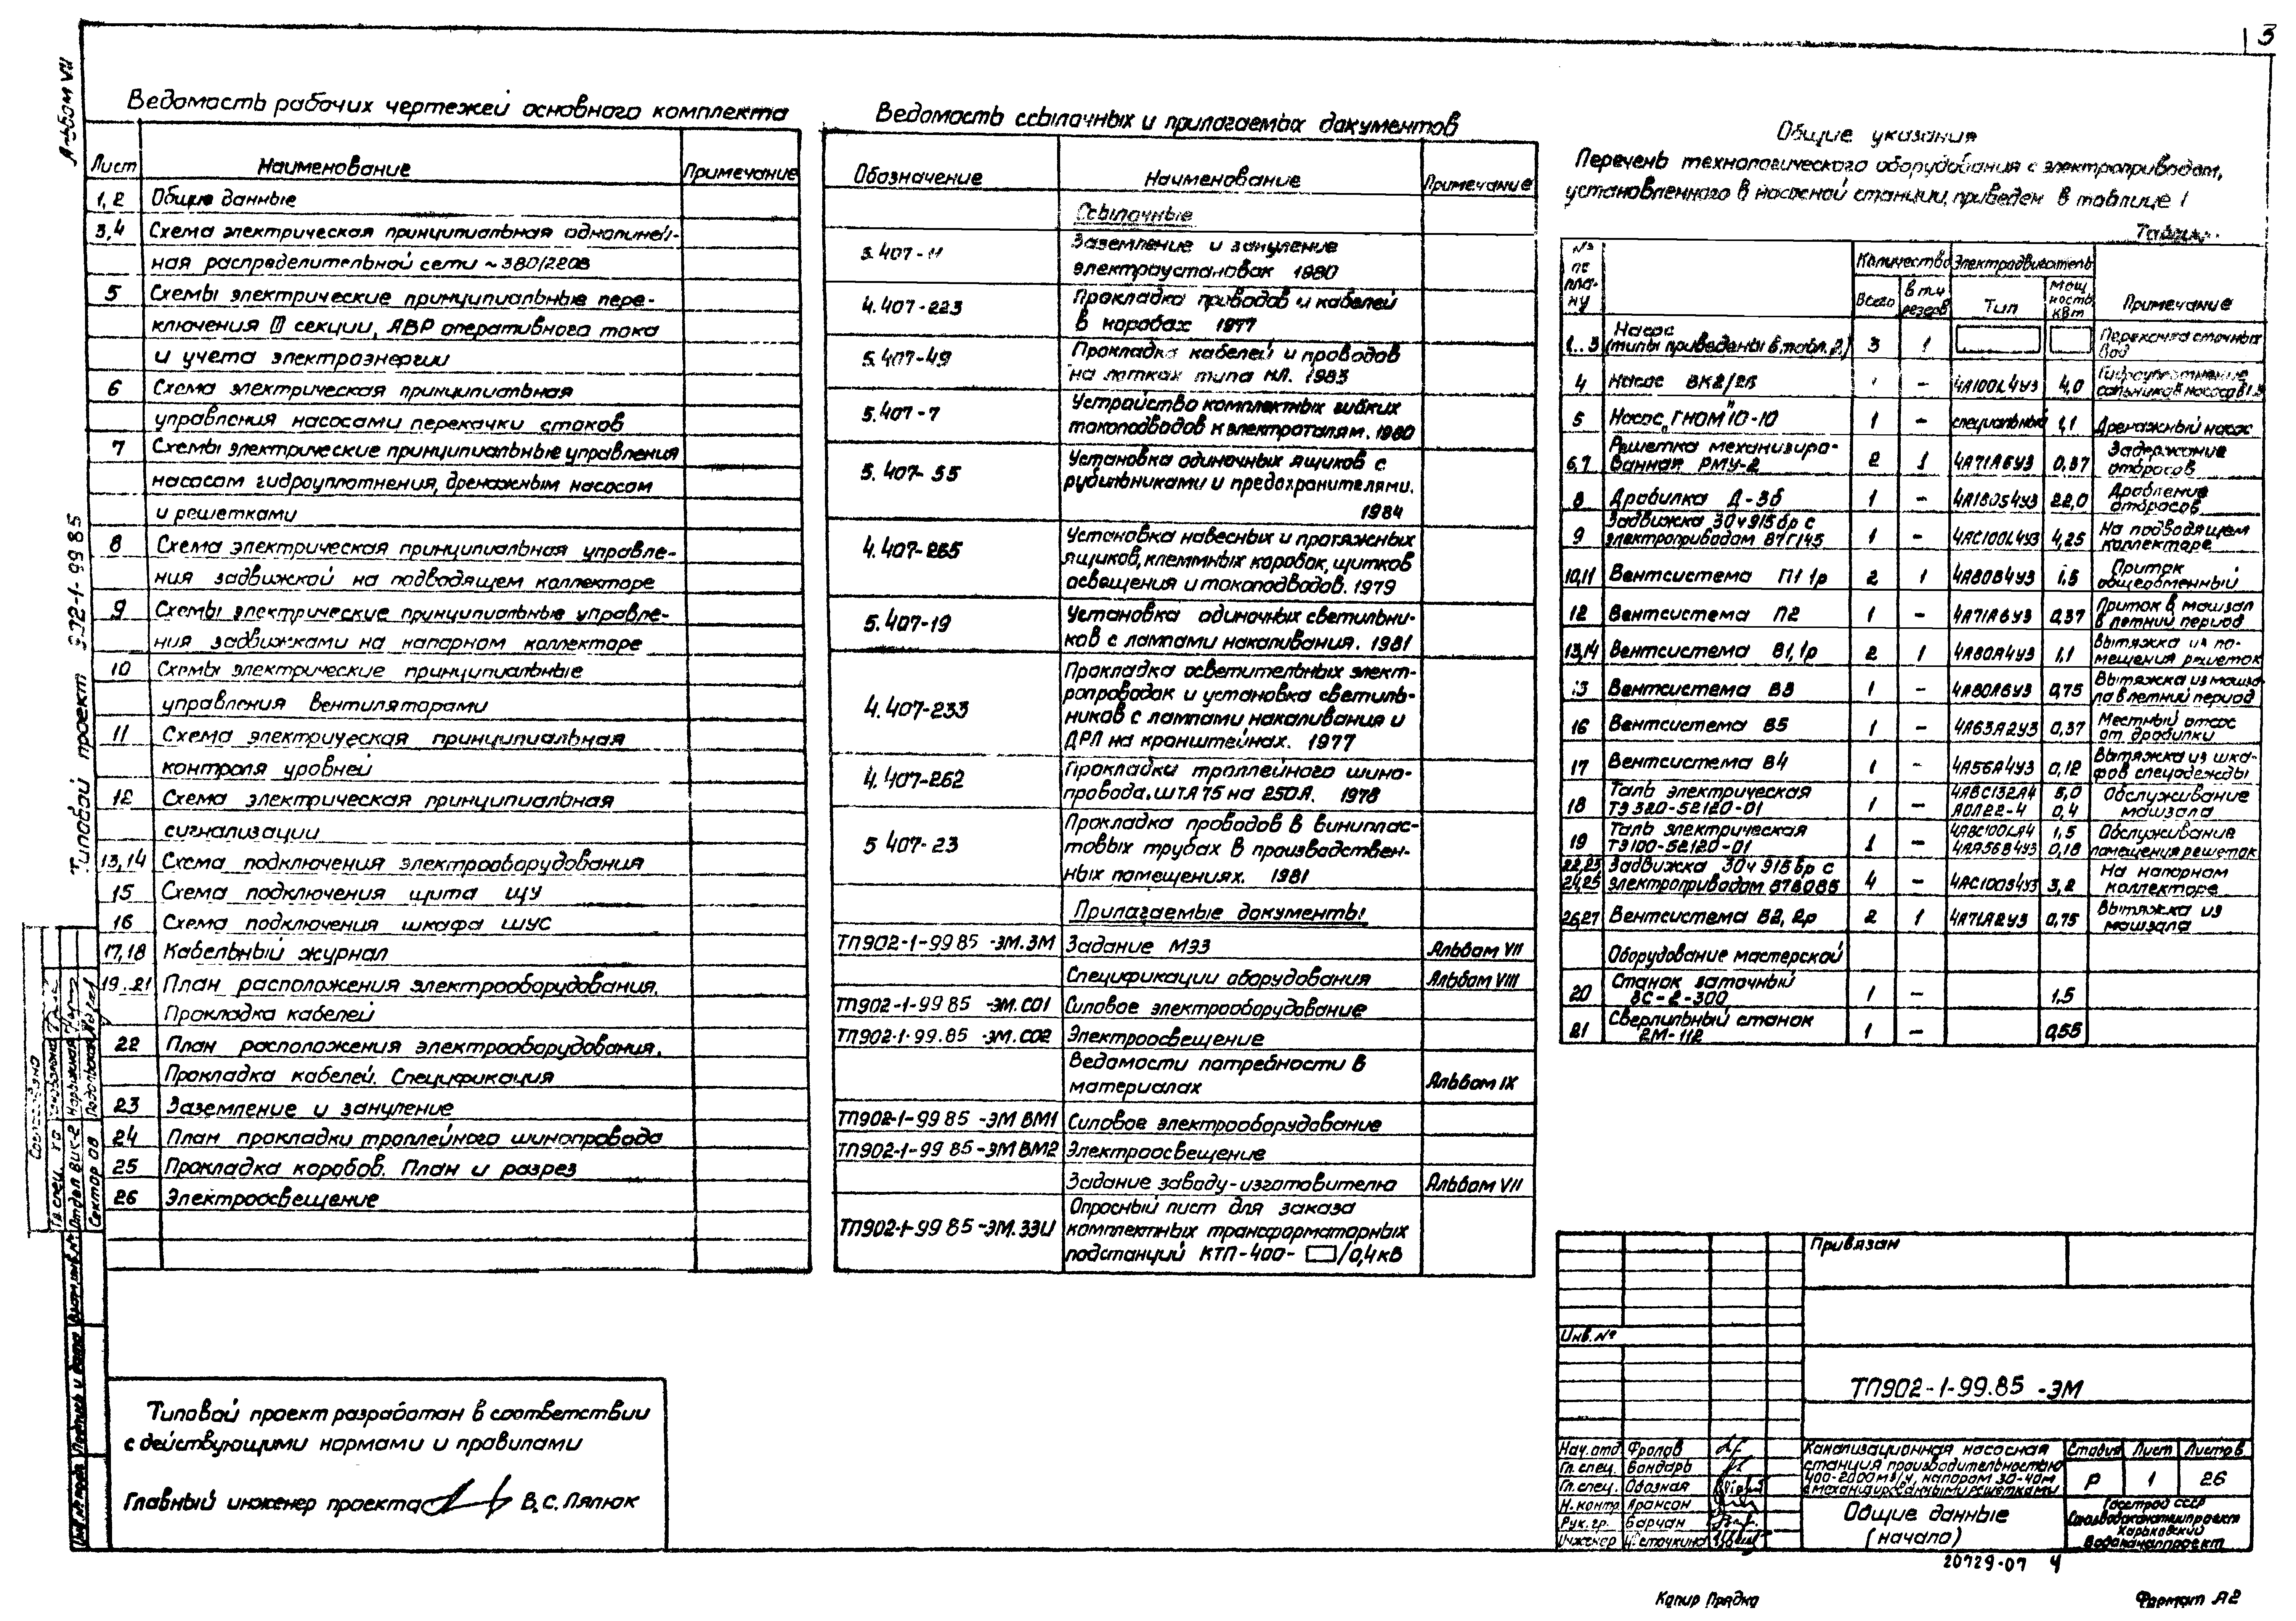 3
Альбом VII
Типовой проект 902-1-99 85
Ведомость рабочих чертежей основного комплекта
Лист Наименование Примечание
1,2 Общие данные
3,4 Схема электрическая принципиальная однолиней-
ная распределительной сети ~380/220В
5 Схемы электрические принципиальные пере-
ключения III секции, АВР оперативного тока
и учета электроэнергии
6 Схема электрическая принципиальная
управления насосами перекачки стоков
7 Схемы электрические принципиальные управления
насосом гидроуплотнения, дренажным насосом
и решетками
8 Схема электрическая принципиальная управле-
ния задвижкой на подводящем коллекторе
9 Схемы электрические принципиальные управле-
ния задвижками на напорном коллекторе
10 Схемы электрические принципиальные
управления вентиляторами
11 Схема электрическая принципиальная
контроля уровней
12 Схема электрическая принципиальная
сигнализации
13,14 Схема подключения электрооборудования
15 Схема подключения щита ЩУ
16 Схема подключения шкафа ШУС
17,18 Кабельный журнал
19..21 План расположения электрооборудования.
Прокладка кабелей
22 План расположения электрооборудования.
Прокладка кабелей. Спецификация
23 Заземление и зануление
24 План прокладки троллейного шинопровода
25 Прокладка коробов. План и разрез
26 Электроосвещение
Ведомость ссылочных и прилагаемых документов
Обозначение Наименование Примечание
Ссылочные
5.407-11 Заземление и зануление
электроустановок 1980
4.407-223 Прокладка проводов и кабелей
в коробах 1977
5.407-49 Прокладка кабелей и проводов
на лотках типа НЛ. 1983
5.407-7 Устройство комплектных гибких
токоподводов к электроталям. 1980
5.407-55 Установка одиночных ящиков с
рубильниками и предохранителями.
1984
4.407-265 Установка навесных и протяжных
ящиков, клеммных коробок, щитков
освещения и токоподводов. 1979
5.407-19 Установка одиночных светильни-
ков с лампами накаливания. 1981
4.407-233 Прокладка осветительных элект-
ропроводок и установка светиль-
ников с лампами накаливания и
ДРЛ на кронштейнах. 1977
4.407-262 Прокладка троллейного шино-
провода ШТА 75 на 250А. 1978
5 407-23 Прокладка проводов в виниплас-
товых трубах в производствен-
ных помещениях. 1981
Прилагаемые документы
ТП902-1-99 85 -ЭМ.ЗМ Задание МЭЗ Альбом VII
Спецификации оборудования Альбом VIII
ТП902-1-99 85 -ЭМ.СО1 Силовое электрооборудование
ТП902-1-99.85 -ЭМ.СО2 Электроосвещение
Ведомости потребности в
материалах Альбом IX
ТП902-1-99 85 -ЭМ ВМ1 Силовое электрооборудование
ТП902-1-99 85 -ЭМ ВМ2 Электроосвещение
Задание заводу-изготовителю Альбом VII
ТП902-1-99 85 -ЭМ.ЗЗИ Опросный лист для заказа
комплектных трансформаторных
подстанций КТП-400- /0,4кВ
Общие указания
Перечень технологического оборудования с электроприводом,
установленного в насосной станции, приведен в таблице 1
№ по плану Количество Электродвигатель
Всего в т.ч. резерв Тип Мощность кВт Примечание
1..3 Насос (типы приведены в табл. 2) 3 1 Перекачка сточных вод
4 Насос ВК2/26 - 4А100L4У3 4,0 Гидроуплотнение сальников насосов 1..3
5 Насос „ГНОМ" 10-10 1 - специальный 1,1 Дренажный насос
6,7 Решетка механизиро-
ванная РМУ-2 2 1 4А71А6У3 0,37 Задержание отбросов
8 Дробилка Д-3б 1 - 4А180S4У3 22,0 Дробление отбросов
9 Задвижка 30ч915бр с
электроприводом 87Г145 1 - 4АС100L4У3 4,25 На подводящем коллекторе
10,11 Вентсистема П1 1р 2 1 4А80В4У3 1,5 Приток общеобменный
12 Вентсистема П2 1 - 4А71А6У3 0,37 Приток в машзал в летний период
13,14 Вентсистема В1,1р 2 1 4А80А4У3 1,1 Вытяжка из по-
мещения решеток
15 Вентсистема В3 1 - 4А80А6У3 0,75 Вытяжка из машза-
ла в летний период
16 Вентсистема В5 1 - 4А63А2У3 0,37 Местный отсос от дробилки
17 Вентсистема В4 1 - 4А56А4У3 0,12 Вытяжка из шка-
фов спецодежды
18 Таль электрическая
ТЭ 320-52120-01 1 - 4АВС132А4 5,0 Обслуживание
АОЛ22-4 0,4 машзала
19 Таль электрическая
ТЭ100-52120-01 1 - 4АВС100LА4 1,5 Обслуживание
4АА56В4У3 0,18 помещения решеток
22,23 Задвижка 30ч915бр с
24,25 электроприводом 87В085 4 - 4АС100S4У3 3,2 На напорном коллекторе
26,27 Вентсистема В2, 2р 2 1 4А71А2У3 0,75 Вытяжка из машзала
Оборудование мастерской
20 Станок заточный
ЗС-2-300 1 - 1,5
21 Сверлильный станок
2М-112 1 - 0,55
Типовой проект разработан в соответствии
с действующими нормами и правилами
Главный инженер проекта В.С.Ляпюк
Согласовано
Гл.спец. ТО
Отдел ВиК-2 Нарыжная
Сектор ОВ Подольская
Взам.инв.№
Подпись и дата
Инв.№ подл.
Привязан
Инв.№
ТП902-1-99.85 -ЭМ
Нач.отд Фролов
Гл.спец. Бондарь
Гл.спец. Обозная
Н.контр. Аронсон
Рук.гр. Барчан
Инженер
Канализационная насосная
станция производительностью
400-2000м3/ч, напором 30-40м
с механизированными решетками
Стадия Лист Листов
Р 1 26
Общие данные
(начало)
Госстрой СССР
Союзводоканалниипроект
Харьковский
Водоканалпроект
20729-07 4
Копир Прядко
Формат А2